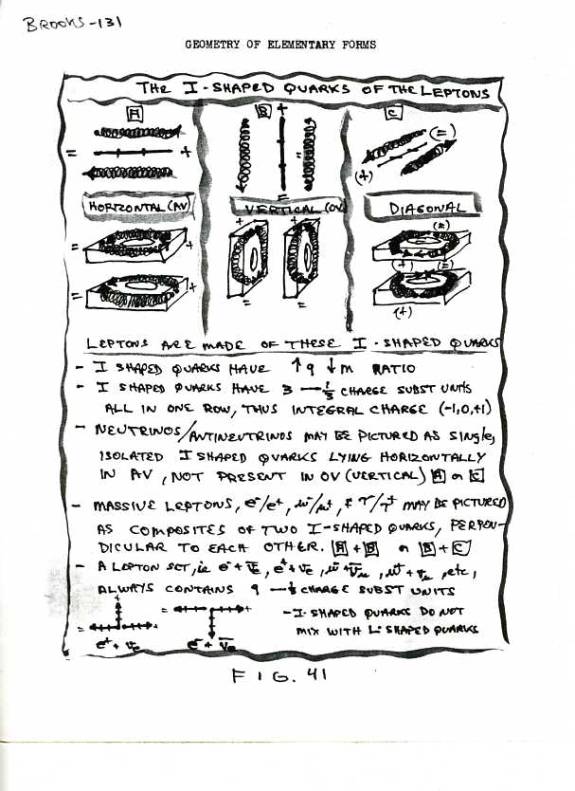 BROOKS-131
GEOMETRY OF ELEMENTARY FORMS
THE I-SHAPED QUARKS OF THE LEPTONS
A B + C
(=)
= + =
(+)
=
HORIZONTAL (AV) VERTICAL (OV) DIAGONAL
+ + (=)
= + = =
(+) (=)
= + (+)
LEPTONS ARE MADE OF THESE I-SHAPED QUARKS
- I SHAPED QUARKS HAVE ↑q ↓m RATIO
- I SHAPED QUARKS HAVE 3 — 1/3 CHARGE SUBST UNITS
ALL IN ONE ROW, THUS INTEGRAL CHARGE (-1,0,+1)
- NEUTRINOS/ANTINEUTRINOS MAY BE PICTURED AS SINGLE,
ISOLATED I SHAPED QUARKS LYING HORIZONTALLY
IN AV, NOT PRESENT IN OV (VERTICAL) A or C
- MASSIVE LEPTONS, e-/e+, μ-/μ+, & τ-/τ+ MAY BE PICTURED
AS COMPOSITES OF TWO I-SHAPED QUARKS, PERPEN-
DICULAR TO EACH OTHER. A + B or B + C
- A LEPTON SET, ie e- + ν̄e, e+ + νe, μ- + ν̄μ, μ+ + νμ, etc,
ALWAYS CONTAINS 9 — 1/3 CHARGE SUBST UNITS
+
= + = + - I-SHAPED QUARKS DO NOT
MIX WITH L-SHAPED QUARKS
e+ + νe e- + ν̄e
FIG. 41